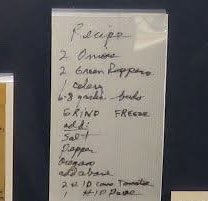 Recipe
2 Onions
2 Green Peppers
1 Celery
6-8 garlic
GRIND FREEZE
add:
Salt
Pepper
Oregano
add above
2 # 10 cans Tomatoes
1 #10